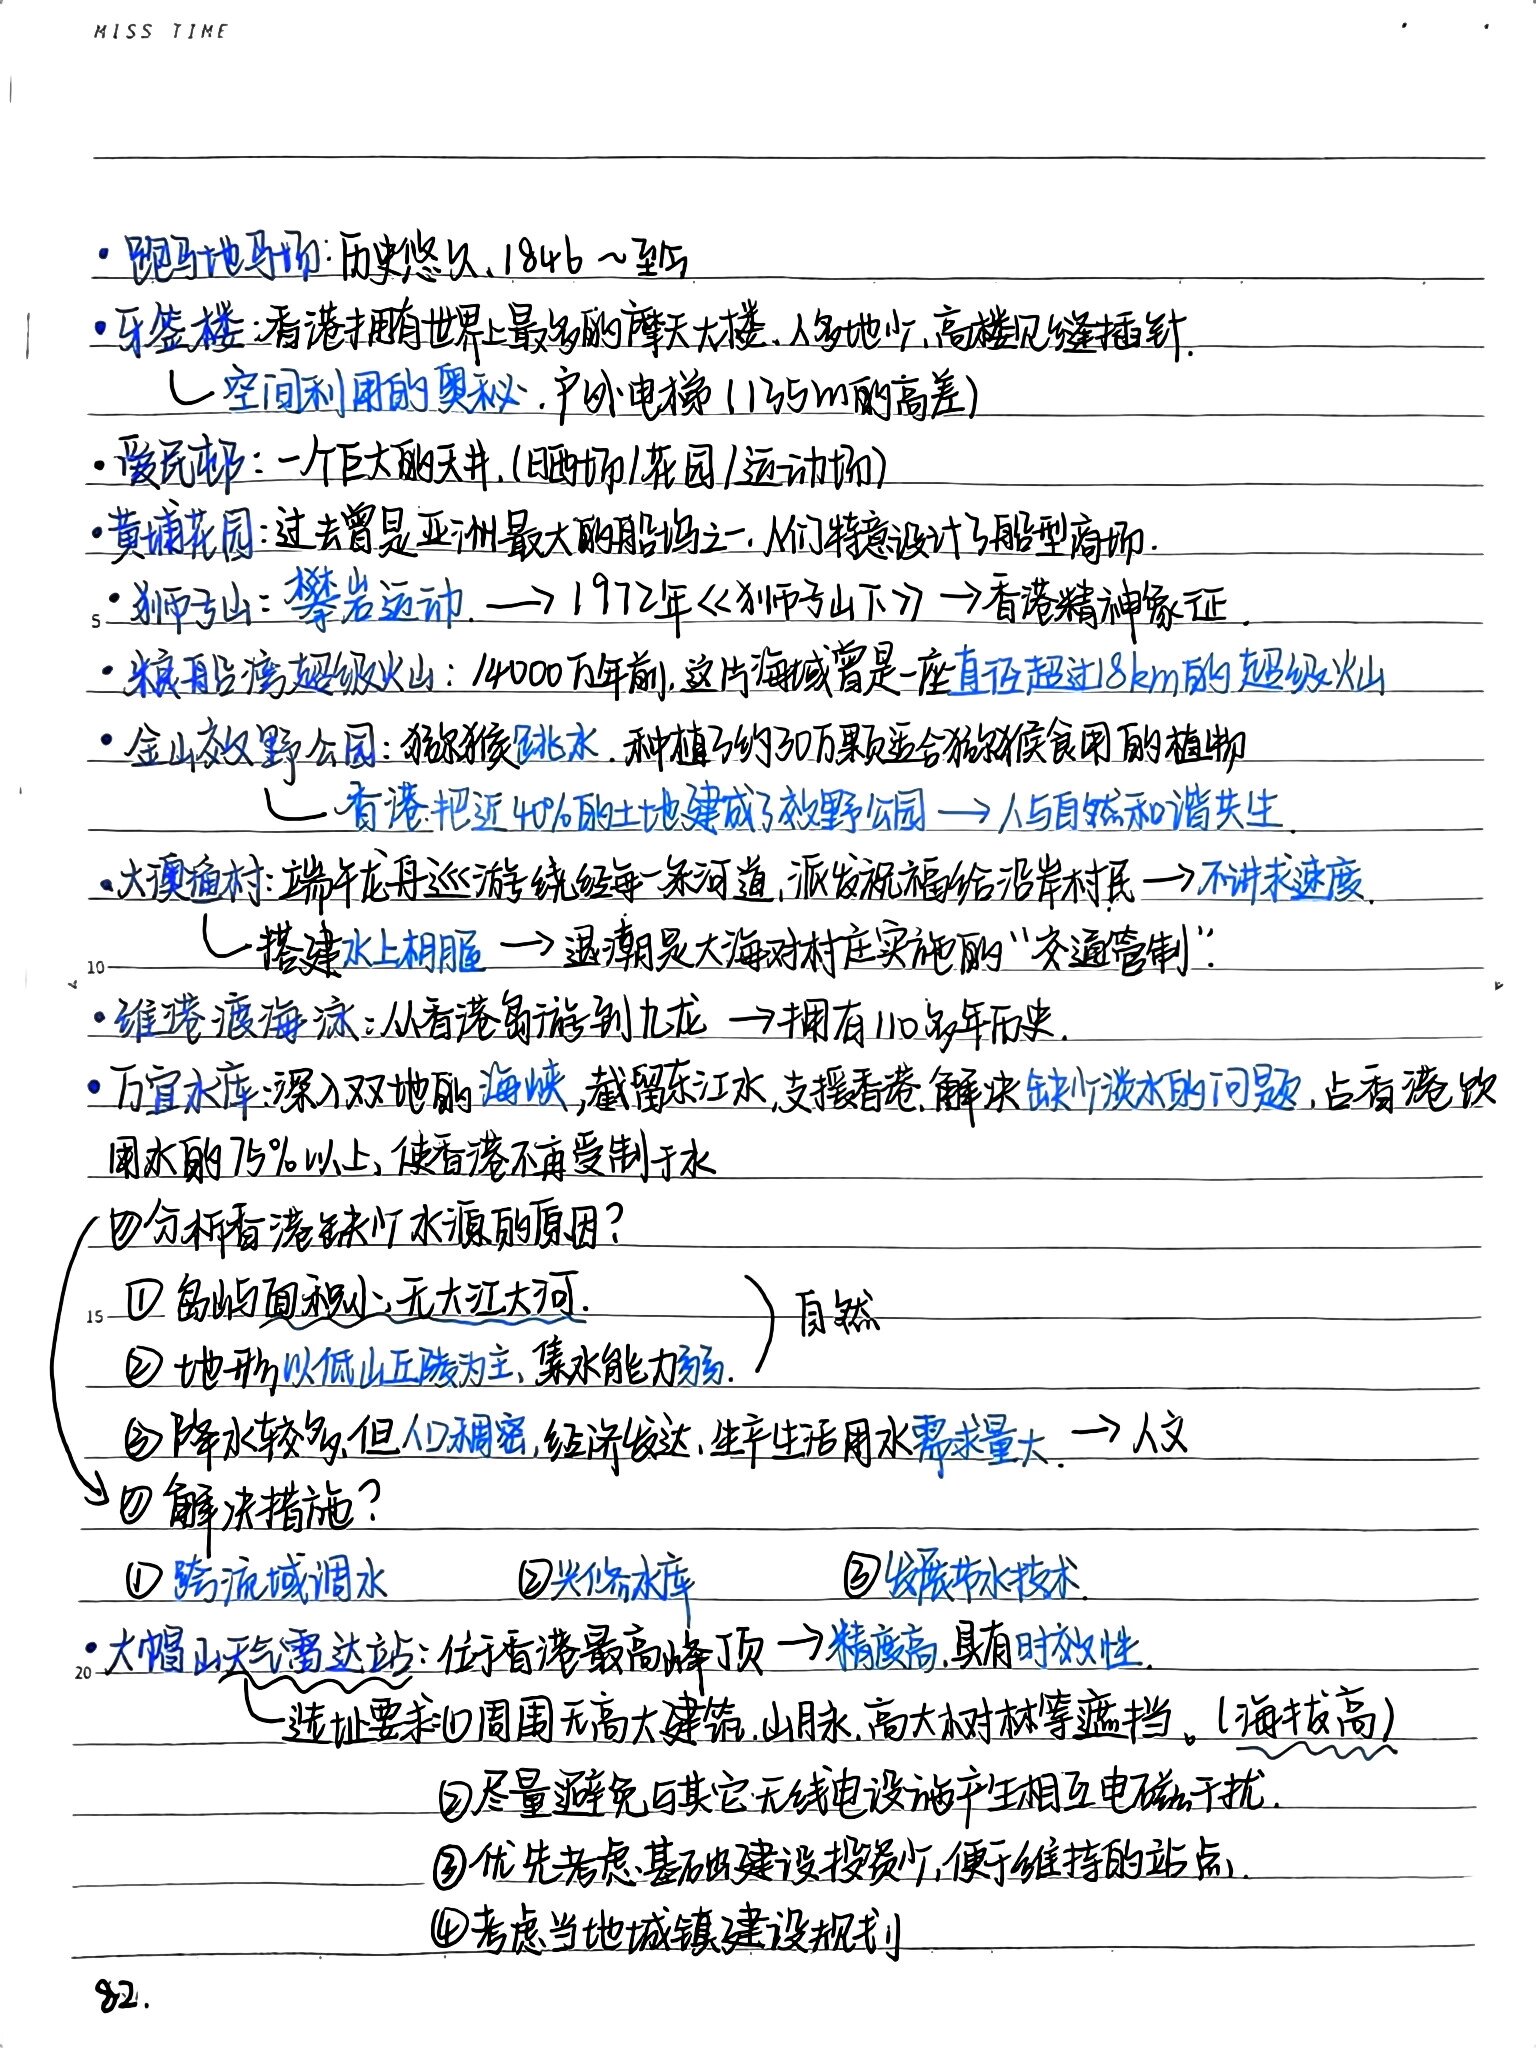 MISS TIME
• 跑马地马场:历史悠久、1846～至今
• 牙签楼:香港拥有世界上最多的摩天大楼、人多地少、高楼见缝插针.
空间利用的奥秘.户外电梯(135m的高差)
• 爱民邨:一个巨大的天井.(晒场/花园/运动场)
• 黄埔花园:过去曾是亚洲最大的船坞之一.人们特意设计了船型商场.
• 狮子山:攀岩运动.→1972年《狮子山下》→香港精神象征.
5
• 粮船湾超级火山:14000万年前,这片海域曾是一座直径超过18km的超级火山
• 金山郊野公园:猕猴跳水.种植了约30万颗适合猕猴食用的植物
香港把近40%的土地建成了郊野公园→人与自然和谐共生.
• 大澳渔村:端午龙舟巡游绕经每一条河道,派发祝福给沿岸村民→不讲求速度.
搭建水上棚屋→退潮是大海对村庄实施的“交通管制”.
10
• 维港渡海泳:从香港岛游到九龙→拥有110多年历史.
• 万宜水库:深入双地的海峡,截留东江水,支援香港.解决缺少淡水的问题,占香港饮
用水的75%以上、使香港不再受制于水
分析香港缺少水源的原因?
① 岛屿面积小、无大江大河.
15
自然
② 地形以低山丘陵为主、集水能力弱.
③ 降水较多,但人口稠密,经济发达、生产生活用水需求量大.→人文
解决措施?
① 跨流域调水 ②兴修水库 ③发展节水技术.
• 大帽山天气雷达站:位于香港最高峰顶→精度高.具有时效性.
20
选址要求:①周围无高大建筑.山脉.高大树林等遮挡。(海拔高)
②尽量避免与其它无线电设施产生相互电磁干扰.
③优先考虑基础建设投资少,便于维持的站点.
④考虑当地城镇建设规划
82.